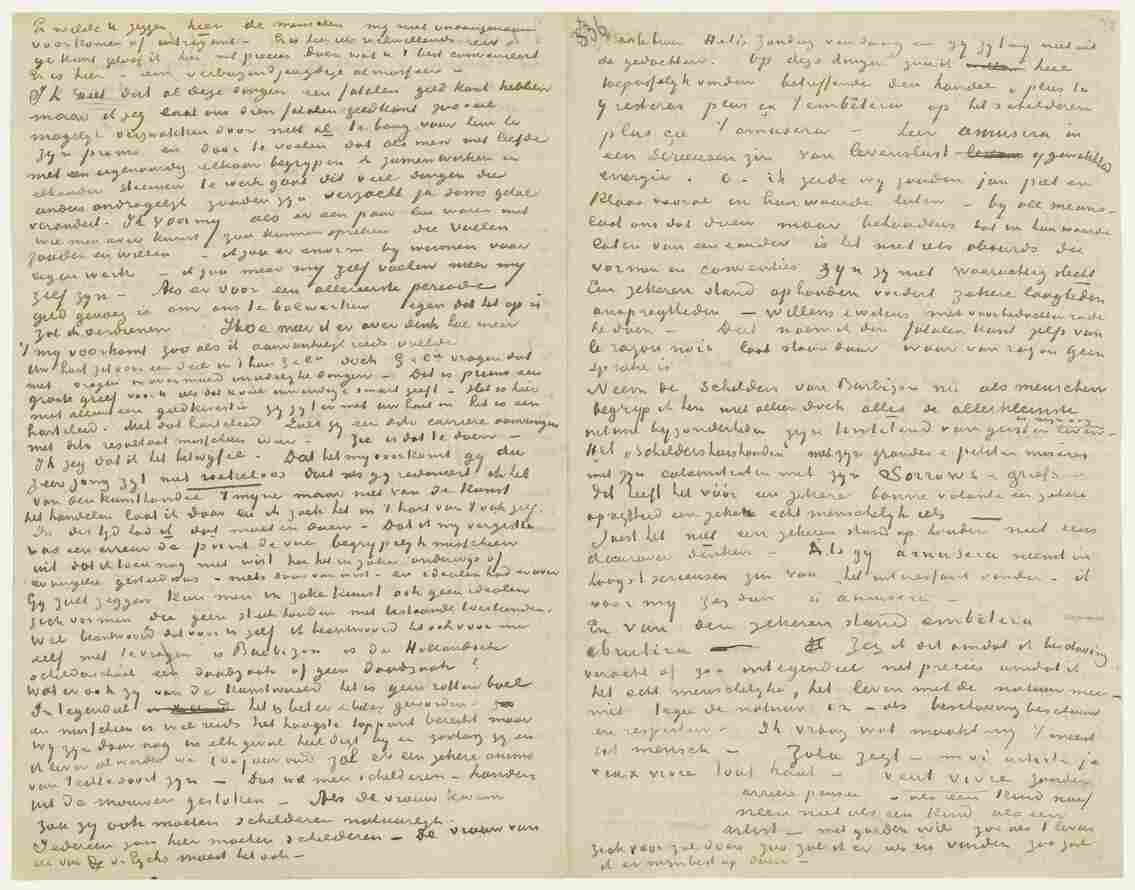 Er wilde u zeggen hier de menschen my niet onaangenaam
voorkomen of intrigant – Er is hier iets welwillends
ge kunt geloof ik hier net precies doen wat u 't best convenieert
Er is hier – een verbazend jeugdige atmosfeer –
Ik weet dat al deze dingen een fatalen geld kant hebben
maar ik zeg laat ons dien fatalen geldkant zooveel
mogelyk verzwakken door niet al te bang voor hem te
zyn primo en door te voelen dat als men met liefde
met een eigenaardig elkaar begrypen & zamenwerken en
elkander steunen te werk gaat dit veel dingen die
anders ondragelyk zouden zyn verzacht ja soms geheel
verandert. Ik voor my als er een paar lui waren met
wie men over kunst zou kunnen spreken die voelen
zouden en willen – ik zou er enorm by winnen voor
eigen werk – ik zou meer my zelf voelen meer my
zelf zyn – Als er voor een allereerste periode
geld genoeg is om ons te bolwerken tegen dat het op is
zal ik verdienen Hoe meer ik er over denk hoe meer
't my voorkomt zoo als ik aanvankelyk reeds voelde
Uw hart zit voor een deel in 't huis G & Cie doch G & Cie vragen dat
met vragen in overmoed onredelyke dingen – Dit is primo een
groote grief voor u als dat u niet onverschillig is smart geeft – Het is hier
niet alleen een geldkwestie gy zyt er met uw hart in het is een
harteleed. Met dat harteleed zult gy een ditto carriere aanvangen
met dito resultaat misschien weer – Zie is dat te doen –
Ik zeg dat ik het betwyfel – Dat het my voorkomt gy die
zeer jong zyt niet roekeloos doet als gy redeneert ik heb
van den kunsthandel 't myne maar niet van de kunst
het handelen laat ik daar en ik zoek het in 't hart van 't vak zelf.
In der tyd had ik dat moeten doen – Dat ik my vergiste
was een erreur de point de vue begrypelyk misschien
wyl dat ik toen nog niet wist hoe het in zake onderwys of
evangelie gesteld was – niets ervan wist – en idealen had erover
Gy zult zeggen kan men in zake kunst ook geen idealen
zich vormen die geen steek houden met bestaande toestanden.
Wel beantwoord dat voor u zelf ik beantwoord het ook voor me
zelf met te vragen is Barbizon is de Hollandsche
schilderschool een daadzaak of geen daadzaak?
Wat er ook zy van de kunstwereld het is geen rotten boel
Integendeel het is beter & beter geworden
en misschien is wel reeds het hoogste toppunt bereikt maar
wy zyn daar nog in elk geval heel digt by en zoolang gy en
ik leven al werden we 100 jaar oud zal er een zekere animo
van 't echte soort zyn – Dus wie men schilderen – handen
uit de mouwen gestoken – Als de vrouw kwam
zou zy ook moeten schilderen natuurlyk.
Iedereen zou hier moeten schilderen – de vrouw van
een van de v. Eycks moest het ook –
336
Waarde broer Het is Zondag vandaag en gy zyt my niet uit
de gedachten. Op deze dingen zou ik heel
toepasselyk vinden betreffende den handel „plus tu
y resteras plus ça t'embêtera op het schilderen
plus ça t'amusera – leer amusera in
een serieusen zin van levenslust opgewektheid
energie. O. ik zeide wy zouden jan piet en
klaas vooral in hun waarde laten – by all means –
laat ons dat doen maar behoudens dat in hun waarde
laten van een ander is het niet iets absurds die
vormen en conventies zyn zy niet waarachtig slecht
Een zekeren stand ophouden vordert zekere laagheden
onopregtheden – willens & wetens met voorbedachten rade
te doen – Dat noem ik den fatalen kant zelfs van
le rayon noir laat staan daar waar van rayon geen
sprake is
Neem de schilders van Barbizon nu als menschen
begryp ik hen niet alleen doch alles de allerkleinste
intime byzonderheden zyn tintelend van geest en leven –
Het „schildershuishouden" met zyn grandes & petites miseres
met zyn calamiteiten met zyn Sorrows & griefs –
dat heeft het vóór een zekere bonne volonte een zekere
opregtheid een zeker echt menschelyk iets –
Juist het niet een zekeren stand op houden niet eens
daarover denken – Als gy amusera neemt in
hoogst serieusen zin van „het interessant vinden – ik
voor my zeg dan ça amusera –
En van den zekeren stand embêtera
abrutira – Zeg ik dit omdat ik beschaving
veracht of zoo integendeel net precies omdat ik
het echt menschelyke, het leven met de natuur mee –
niet tegen de natuur in – als beschaving beschouw
en respecteer – Ik vraag wat maakt my 't meest
tot mensch – Zola zegt – moi artiste je
veux vivre tout haut – veut vivre zonder
arriere pensee – als een kind naif
neen niet als een kind als een
artist – met goeden wil zoo als 't leven
zich voordoet zoo zal ik er iets in vinden zoo zal
ik er myn best op doen –